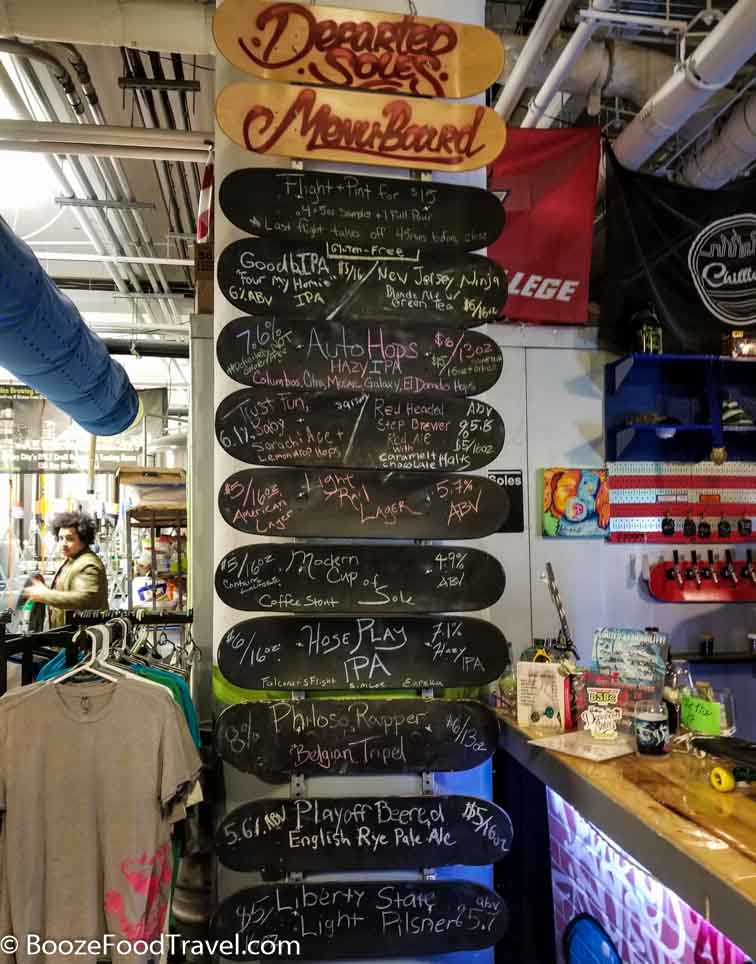 Departed
Soles
MenuBoard
Flight + Pint for $15
4 5oz Samples + 1 Full Pour
* Last flight takes off 45mins before close
Gluten-Free
GoodbIPA $5/16
"Four My Homies"
IPA
6% ABV
New Jersey Ninja
Blonde Ale w/
Green Tea
$6/16oz
7.6%
AutoHops
HAZY IPA
$6/13oz
Columbus, Citra, Mosaic, Galaxy, El Dorado Hops
Just Fun,
Baby
6.1%
Sorachi Ace +
Lemondrop Hops
$5/16oz
Red Headed
Step Brewer
Red Ale
with
caramel +
chocolate Malts
ABV
5.8
%
$5/16oz
$5/16oz
American
Lager
Light
Rail
Lager
5.7%
ABV
$5/16oz
Contains
Modern
Cup of
Sole
Coffee Stout
4.9%
ABV
$6/16oz
Hose Play
IPA
7.1%
Hazy
IPA
Falconer's Flight Simcoe Eureka
8%
Philoso Rapper
Belgian Tripel
$6/13oz
5.6% ABV
Playoff Beered
English Rye Pale Ale
$5/16oz
$5/
16oz
Liberty State
Light Pilsner
abv
5.7
LLEGE
Chill
Soles
DSBC
© BoozeFoodTravel.com